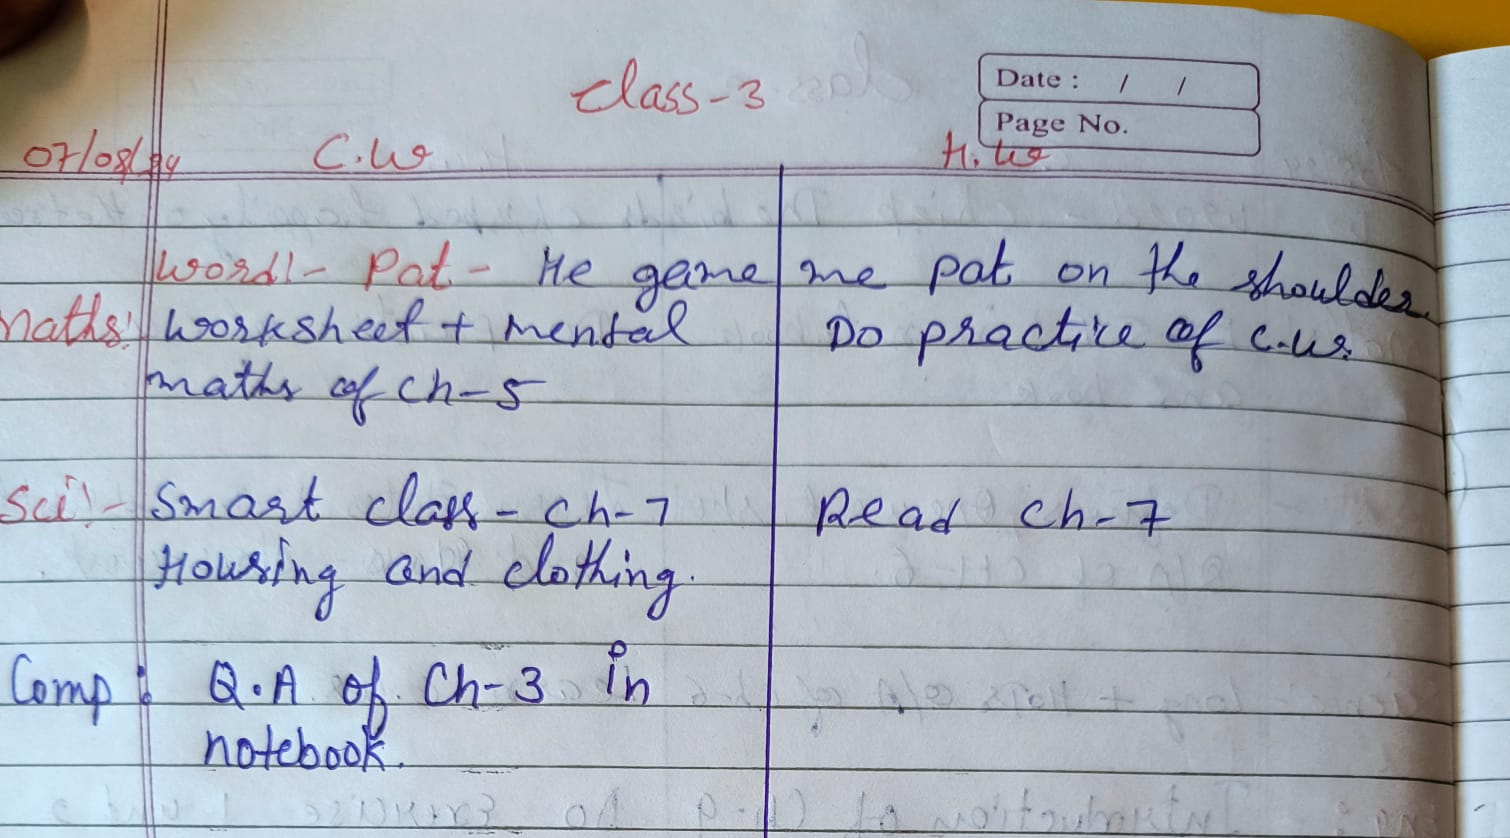 class-3
Date : / /
Page No.
07/08/24 C.W H.W
Word!- Pat- He game me pat on the shoulder.
Maths: Worksheet + mental Do practice of C.W.
maths of Ch-5
Sci!- Smart class - ch-7 Read ch-7
Housing and clothing.
Comp: Q.A. of Ch-3 in
notebook.